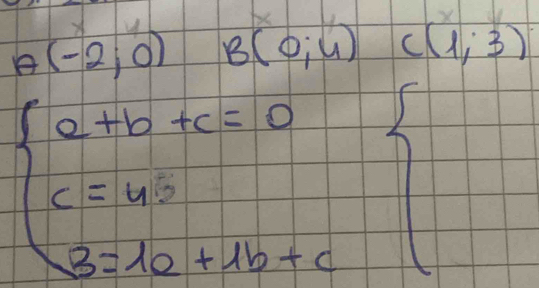 A(-2;0) B(0;4) C(1;3)
{ a+b+c=0 {
c=4
3=1a+1b+c